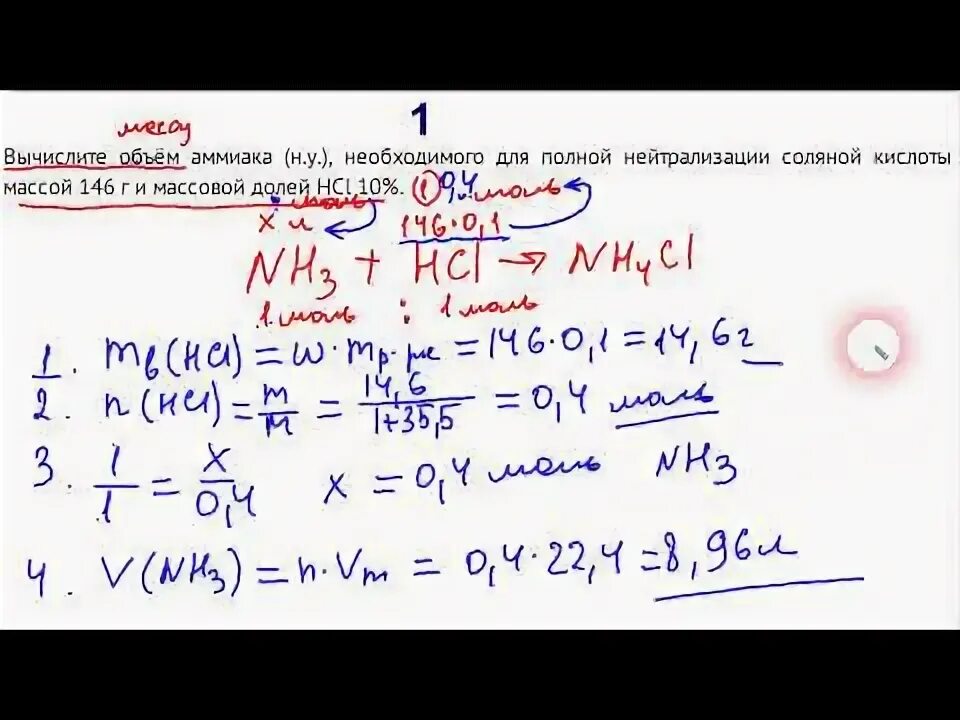 1
массу
Вычислите объём аммиака (н.у.), необходимого для полной нейтрализации соляной кислоты
массой 146 г и массовой долей HCl 10%. ① 0,4 моль
моль
x л 146·0,1
NH₃ + HCl → NH₄Cl
1 моль : 1 моль
1. mв(HCl) = w·mр-ра = 146·0,1 = 14,6 г
2. n(HCl) = m/M = 14,6/1+35,5 = 0,4 моль
3. 1/1 = x/0,4 x = 0,4 моль NH₃
4. V(NH₃) = n·Vm = 0,4·22,4 = 8,96 л